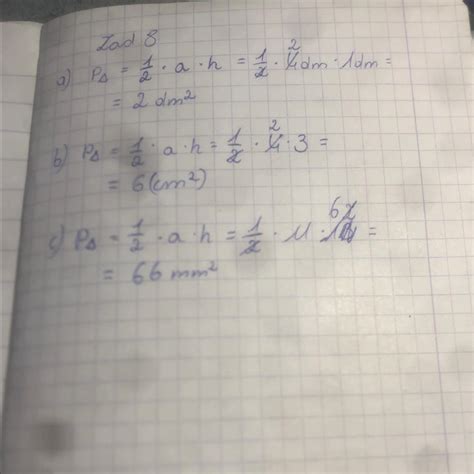 Zad 8
a) P△ = 1/2 · a · h = 1/2 · 4dm · 1dm =
2
= 2 dm²
b) P△ = 1/2 · a · h = 1/2 · 4 · 3 =
2
= 6 (cm²)
c) P△ = 1/2 · a · h = 1/2 · 11 · 12 =
6
= 66 mm²